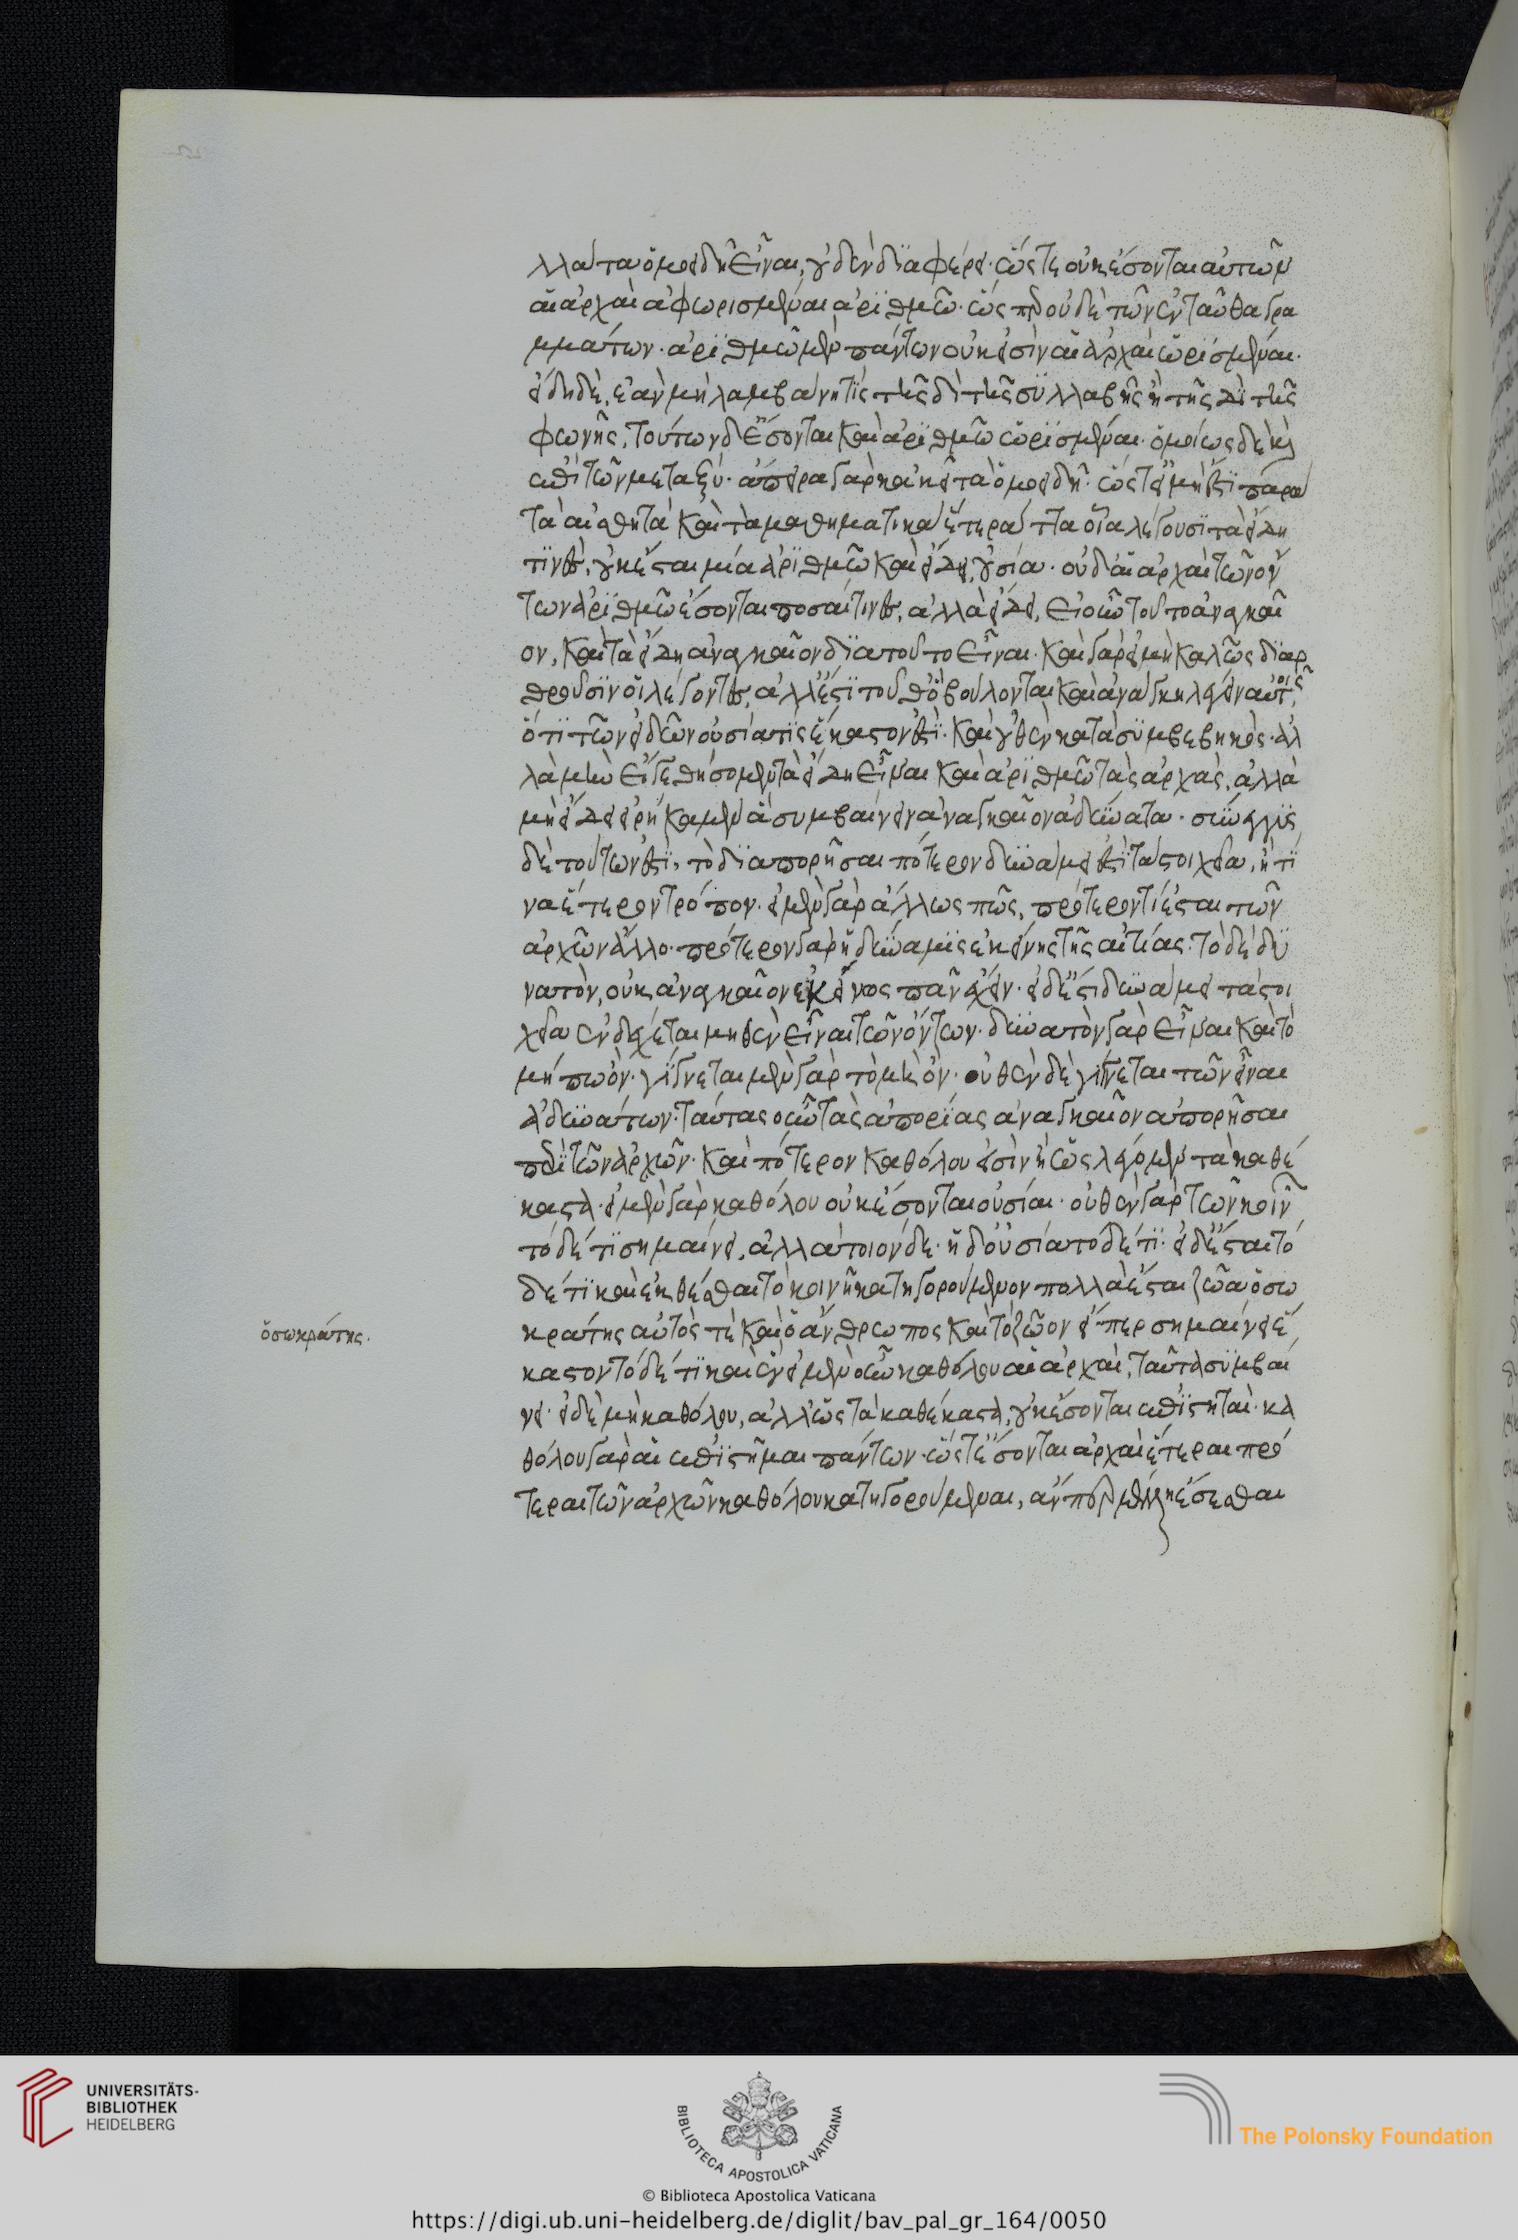 λλα ταῦ ὁμοειδῆ εἶναι, οὐδὲν διαφέρει· ὥστε οὐκ ἔσονται αὐτῶν
αἱ ἀρχαὶ ἀφωρισμέναι ἀριθμῷ· ὥσπερ οὐδὲ τῶν ἐνταῦθα γρα
μμάτων· ἀριθμῷ μὲν πάντων οὐκ εἰσὶν αἱ ἀρχαὶ ὡρισμέναι·
εἴδη δὲ, ἐὰν μὴ λαμβάνη τίς τῆς δὶ τῆς συλλαβῆς ἢ τῆς δὶ τῆς
φωνῆς, τούτων δ' ἔσονται καὶ ἀριθμῷ ὡρισμέναι· ὁμοίως δὲ καὶ
ἐπὶ τῶν μεταξύ· ἄπειρα γὰρ κἀκεῖ τὰ ὁμοειδῆ· ὥστ' εἰ μὴ ἔστι παρὰ
τὰ αἰσθητὰ καὶ τὰ μαθηματικὰ ἕτερα ἄττα οἷα λέγουσι τὰ εἴδη
τινὲς, οὐκ ἔσται μία ἀριθμῷ καὶ εἴδει, οὐσία· οὐδ' αἱ ἀρχαὶ τῶν ὄν
των ἀριθμῷ ἔσονται ποσαί τινες, ἀλλὰ εἴδει, εἰ οὖν τοῦτο ἀναγκαῖ
ον, καὶ τὰ εἴδη ἀναγκαῖον διὰ τοῦτο εἶναι· καὶ γὰρ εἰ μὴ καλῶς διαρ
θροῦσιν οἱ λέγοντες, ἀλλ' ἔστι τοῦθ' ὃ βούλονται καὶ ἀνάγκη λέγειν αὐτοῖς,
ὅτι τῶν εἰδῶν οὐσία τὶς ἕκαστον ἐστὶ· καὶ οὐθὲν κατὰ συμβεβηκός· ἀλ
λὰ μὴν εἴγε θήσομεν τὰ εἴδη εἶναι καὶ ἀριθμῷ τὰς ἀρχὰς, ἀλλὰ
μὴ εἴδει εἰρήκαμεν ἃ συμβαίνειν ἀναγκαῖον ἀδύνατα· σύνεγγυς
δὲ τούτων ἐστὶ, τὸ διαπορῆσαι πότερον δυνάμει ἐστὶ τὰ στοιχεῖα, ἤ τι
να ἕτερον τρόπον· εἰ μὲν γὰρ ἄλλως πῶς, πρότερον τὶ ἔσται τῶν
ἀρχῶν ἄλλο· πρότερον γὰρ ἡ δύναμις ἐκείνης τῆς αἰτίας· τὸ δὲ δυ
νατὸν, οὐκ ἀναγκαῖον ἐκείνως πᾶν ἔχειν· εἰ δ' ἔστι δυνάμει τὰ στοι
χεῖα ἐνδέχεται μηθὲν εἶναι τῶν ὄντων· δυνατὸν γὰρ εἶναι καὶ τὸ
μήπω ὄν· γίγνεται μὲν γὰρ τὸ μὴ ὄν· οὐθὲν δὲ γίγνεται τῶν εἶναι
ἀδυνάτων· ταύτας οὖν τὰς ἀπορίας ἀναγκαῖον ἀπορῆσαι
περὶ τῶν ἀρχῶν· καὶ πότερον καθόλου εἰσὶν ἢ ὡς λέγομεν τὰ καθέ
καστα· εἰ μὲν γὰρ καθόλου οὐκ ἔσονται οὐσίαι· οὐθὲν γὰρ τῶν κοινῇ
τόδέ τι σημαίνει, ἀλλὰ τοιόνδε· ἡ δ' οὐσία τόδέ τι· εἰ δ' ἔσται τό
δέ τι καὶ ἐκθέσθαι τὸ κοινῇ κατηγορούμενον πολλὰ ἔσται ζῶα ὁ σω
κράτης αὐτός τὲ καὶ ὁ ἄνθρωπος καὶ τὸ ζῶον εἴπερ σημαίνει ἕ
καστον τόδέ τι καὶ ἕν εἰ μὲν οὖν καθόλου αἱ ἀρχαὶ, ταῦτα συμβαί
νει· εἰ δὲ μὴ καθόλου, ἀλλ' ὡς τὰ καθέκαστα, οὐκ ἔσονται ἐπιστηταὶ· κα
θόλου γὰρ αἱ ἐπιστῆμαι πάντων· ὥστ' ἔσονται ἀρχαὶ ἕτεραι πρό
τεραι τῶν ἀρχῶν καθόλου κατηγορούμεναι, ἄνπερ μέλλη ἔσεσθαι
ὁ σωκράτης.
UNIVERSITÄTS-
BIBLIOTHEK
HEIDELBERG
BIBLIOTECA APOSTOLICA VATICANA
The Polonsky Foundation
© Biblioteca Apostolica Vaticana
https://digi.ub.uni-heidelberg.de/diglit/bav_pal_gr_164/0050